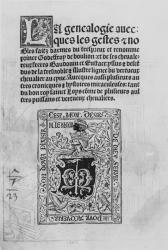 La genealogie auec
ques les gestes & no
bles faitz darmes du trespreux et renomme
prince Godeffroy de boulion et de ses cheuale
reux freres Baudouin et Eustace: yssus & desce
dus de la tresnoble & illustre lignee du vertueux
cheualier au cyne. Auecques aussi plusieurs au
tres croniques & hystoires miraculeuses: tant
du bon roy sainct Loys comme de plusieurs aul
tres puissans et vertueux cheualiers.
CEST MON DESIR
23